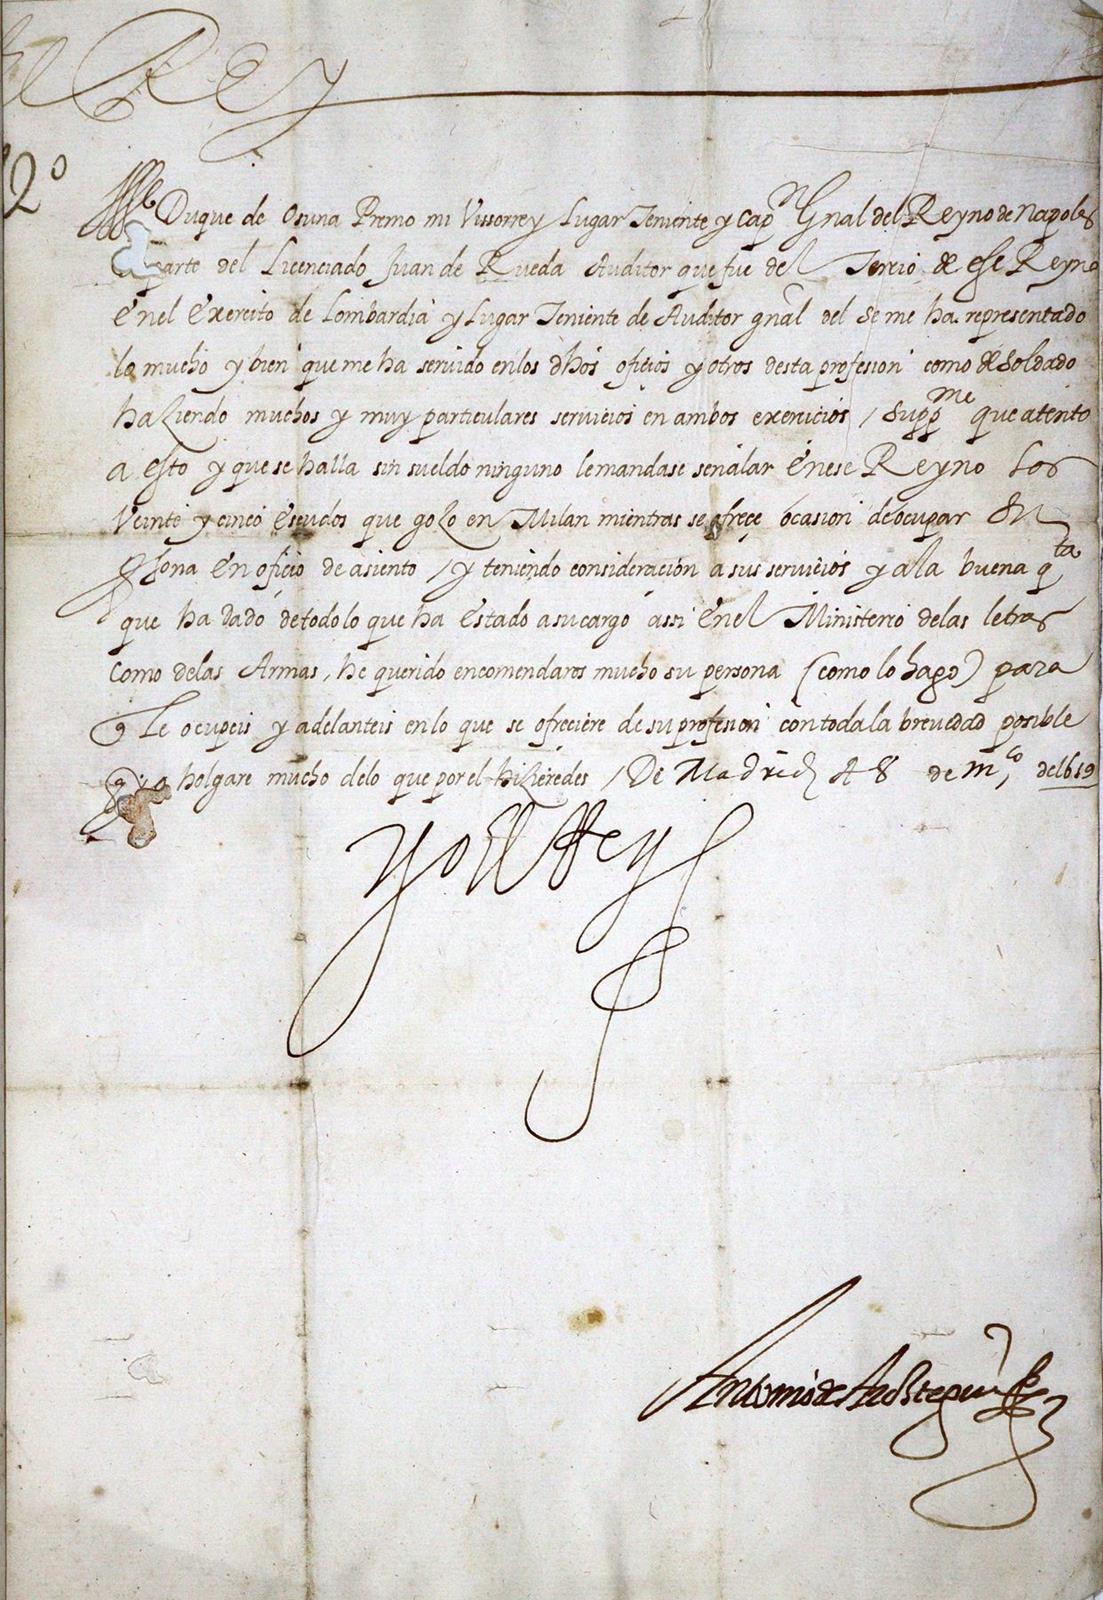 El Rey
2º
Illᵉ Duque de Osuna Primo mi Vissorrey Lugar Teniente y capⁿ Gnal del Reyno de Napoles
parte del Licenciado Juan de Rueda Auditor que fue del Tercio de esse Reyno
en el Exercito de Lombardia y Lugar Teniente de Auditor gnal del se me ha representado
lo mucho y bien que me ha servido en los dhos oficios y otros desta profesion como de soldado
haziendo muchos y muy particulares servicios en ambos exercicios / suppᵐᵉ que atento
a esto y que se halla sin sueldo ninguno le mandase señalar en ese Reyno Los
Veinte y cinco escudos que gozo en Milan mientras se ofrece ocasion de ocupar su
psona en oficio de asiento / y teniendo consideracion a sus servicios y a la buena qᵗᵃ
que ha dado de todo lo que ha estado a su cargo assi en el Ministerio de las letras
como de las Armas, he querido encomendaros mucho su persona (como lo hago) para
q Le ocupeis y adelanteis en lo que se ofreciere de su profesion con toda la brevedad posible
q yo holgare mucho de lo que por el hizieredes / De Madrid A 8 de mᵒ, de 1619
Yo el Rey
Antonio de Arostegui